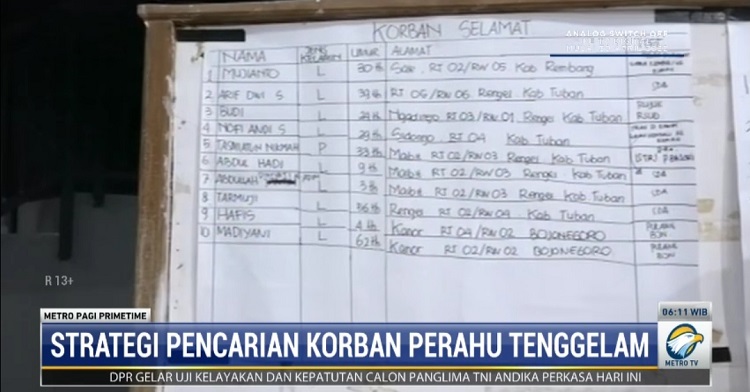 KORBAN SELAMAT
ANALOG SWITCH OFF
NAMA JENIS KELAMIN UMUR ALAMAT
1 MUJIANTO L 30 th RT 02/RW 05 Kab Rembang
2 ARIF DWI S L 39 th RT 05/RW 06 Rengel Kab Tuban
3 BUDI L RT 03/RW 01 Rengel Kab Tuban RUJUK RSUD
4 NOFI ANDI S L 29 th RT 04 Kab Tuban
5 P 33 th RT 02/RW 03 Rengel Kab Tuban
6 ABDUL HADI L 9 th RT 02/RW 03 Kab Tuban
7 ABDULLAH L 3 th RT 02/RW 03 Rengel Kab Tuban
8 TARMUJI L 36 th Rengel RT 02/RW 04 Kab Tuban
9 HAFIS L 4 th Kanor RT 04/RW 02 BOJONEGORO
10 MADIYANI L 62 th Kanor RT 02/RW 02 BOJONEGORO
R 13+
METRO PAGI PRIMETIME
06:11 WIB
STRATEGI PENCARIAN KORBAN PERAHU TENGGELAM
METRO TV
DPR GELAR UJI KELAYAKAN DAN KEPATUTAN CALON PANGLIMA TNI ANDIKA PERKASA HARI INI